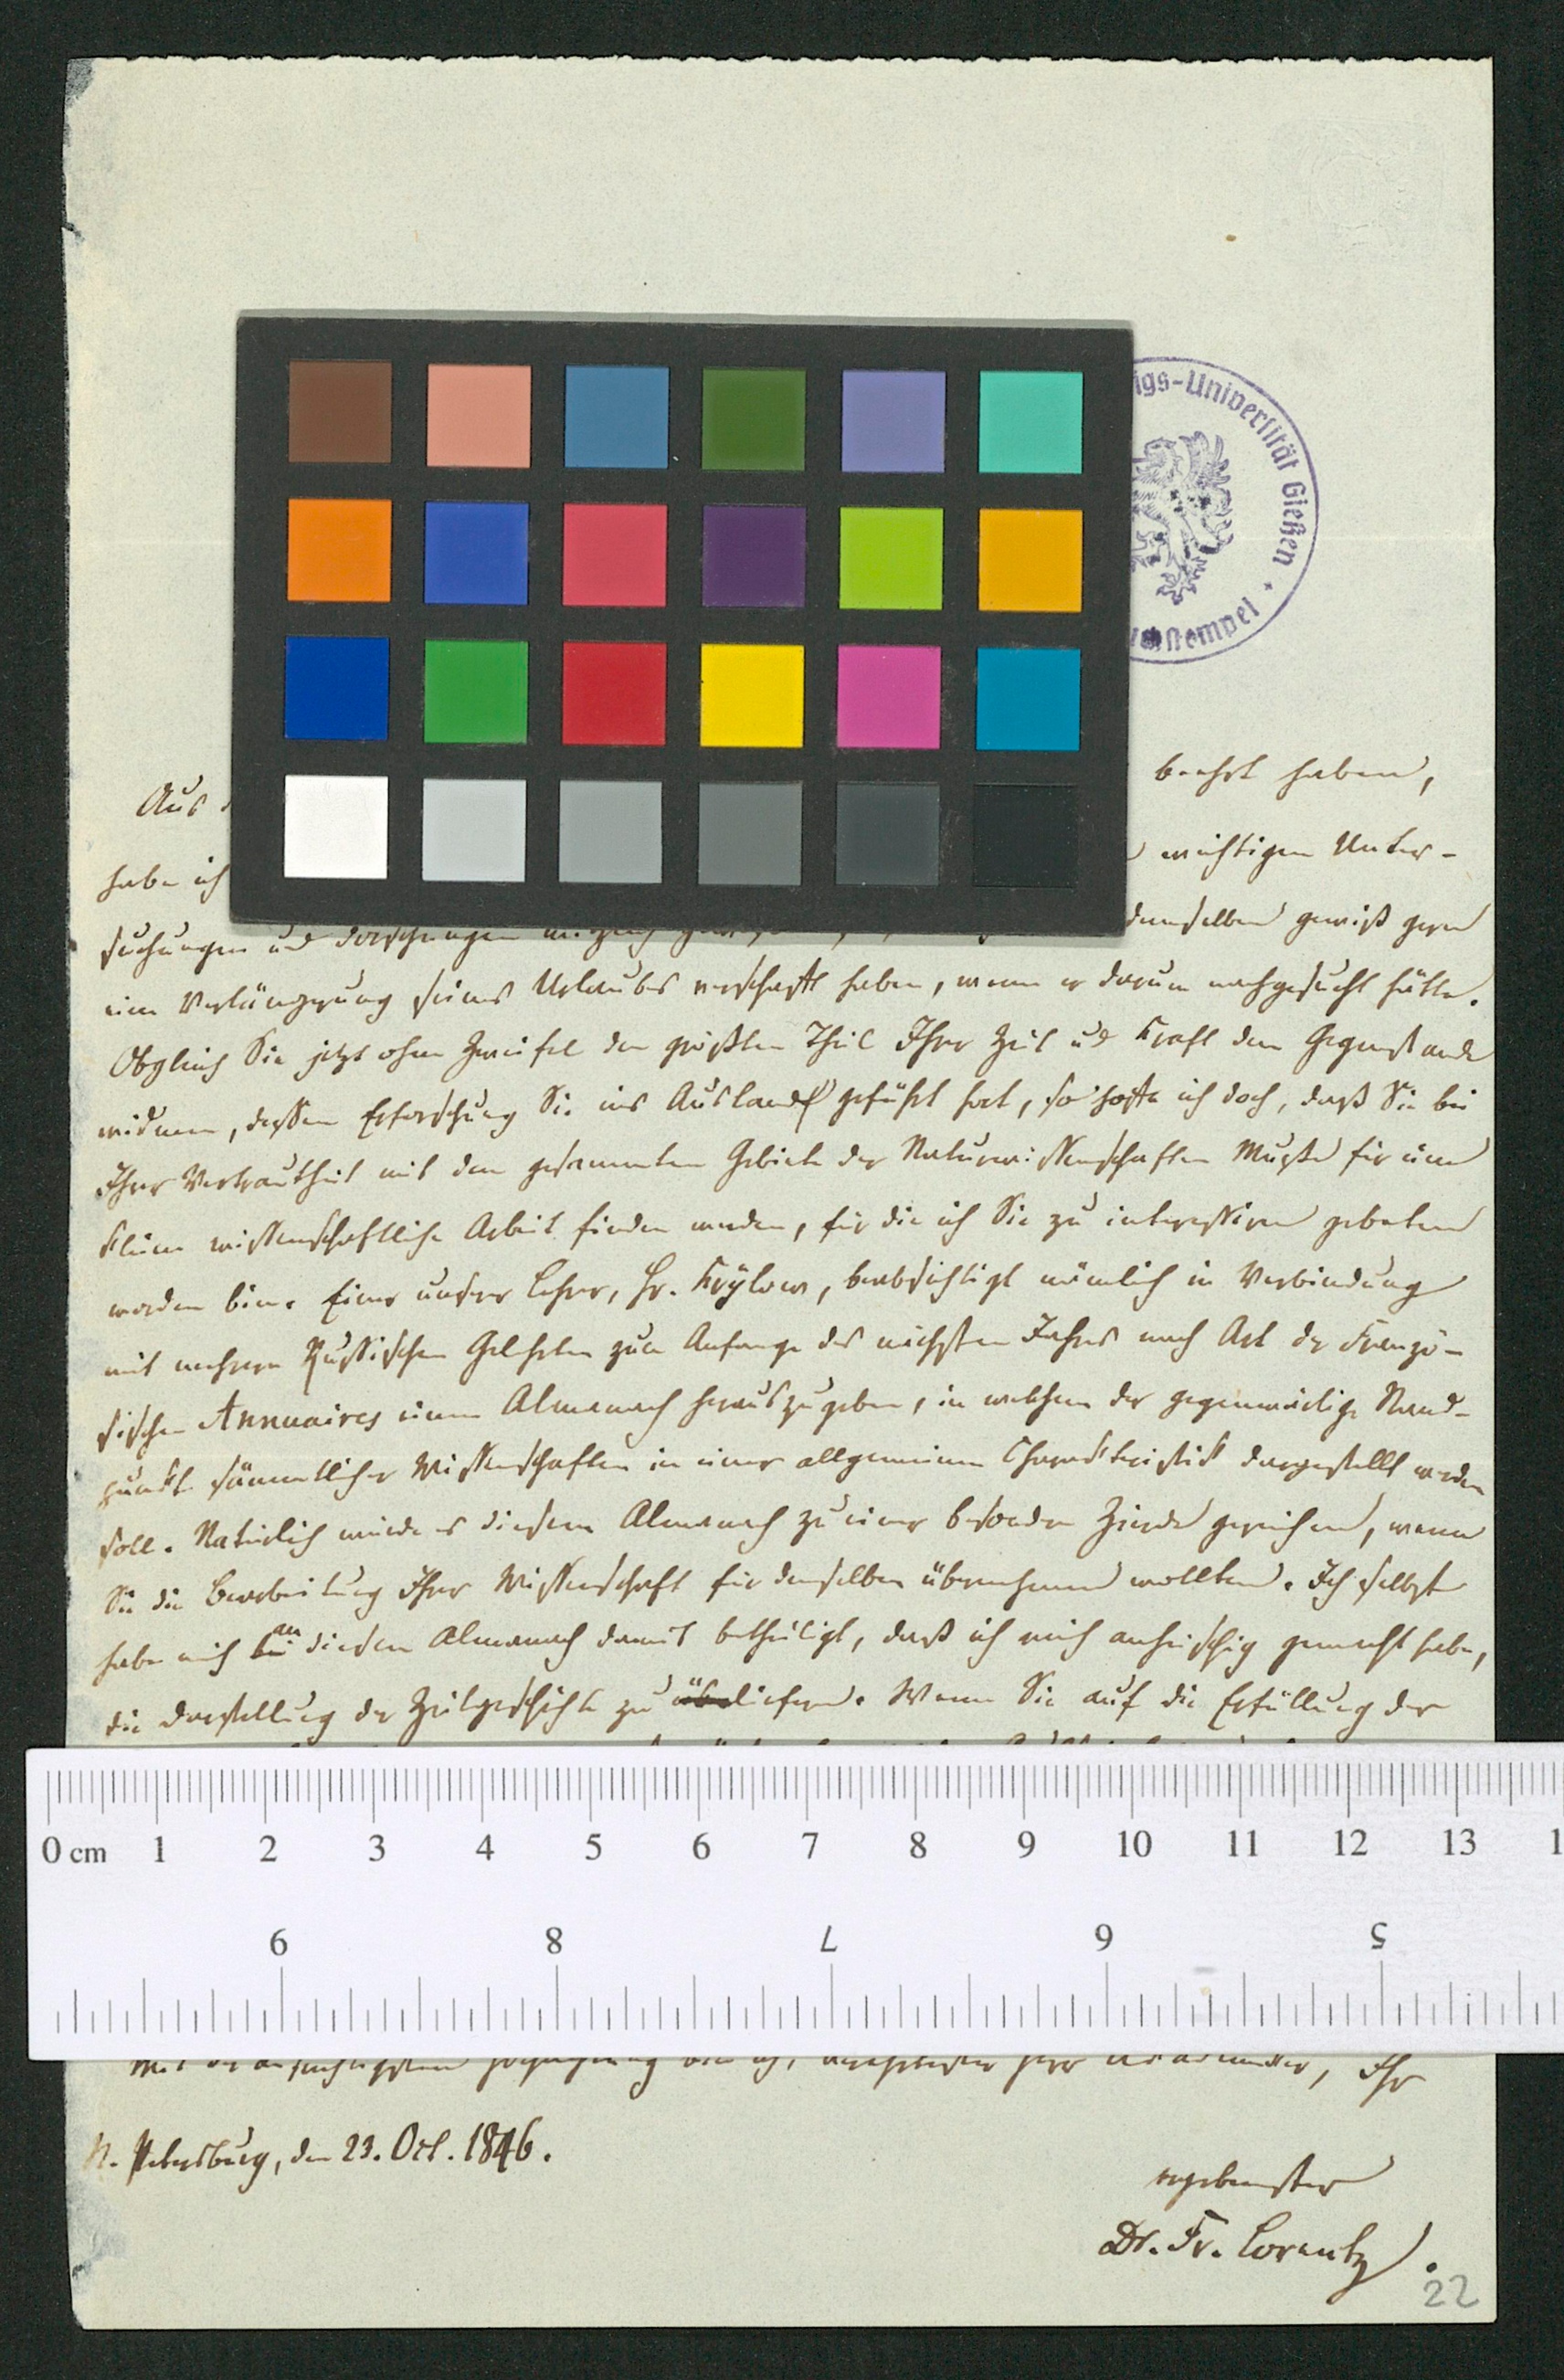 igs-Universität Gießen
stempel
Aus
beehrt haben,
habe ich
wichtigen Unter-
suchungen und Forschungen
demselben gewiß gern
eine Verlängerung seines Urlaubes verschafft haben, wenn er darum nachgesucht hätte.
Obgleich Sie jetzt ohne Zweifel den größten Theil Ihrer Zeit und Kraft dem Gegenstande
widmen, dessen Erforschung Sie ins Ausland geführt hat, so hoffe ich doch, daß Sie bei
Ihrer Vertrautheit mit dem gesammten Gebiete der Naturwissenschaften Muße für eine
kleine wissenschaftliche Arbeit finden werden, für die ich Sie zu interessiren gebeten
worden bin. Einer unsrer Lehrer, Hr. Krÿlow, beabsichtigt nämlich in Verbindung
mit mehren Russischen Gelehrten zum Anfange des nächsten Jahres nach Art der Franzö-
sischen Annuaires einen Almanach herauszugeben, in welchem der gegenwärtige Stand-
punkt sämmtlicher Wissenschaften in einer allgemeinen Charakteristik dargestellt werden
soll. Natürlich würde es diesem Almanach zu einer besondern Zierde gereichen, wenn
Sie die Bearbeitung Ihrer Wissenschaft für denselben übernehmen wollten. Ich selbst
habe mich an diesem Almanach damit betheiligt, daß ich mich anheischig gemacht habe,
die Darstellung der Zeitgeschichte zu liefern. Wenn Sie auf die Erfüllung der
0 cm 1 2 3 4 5 6 7 8 9 10 11 12 13 1
9 8 7 6 5
Mit der aufrichtigsten Hochachtung bin ich, verehrtester Herr Akademiker, Ihr
St. Petersburg, den 23. Oct. 1846.
ergebenster
Dr. Fr. Lorentz.
22